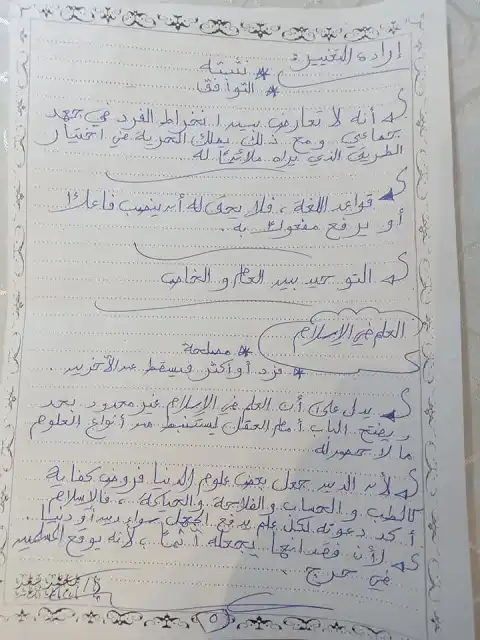 إرادة التغيير :
* نشبته
* التوافق
أنه لا تعارض بين انخراط الفرد في جهد
جماعي ومع ذلك يملك الحرية في اختيار
الطريق الذي يراه ملائمًا له .
قواعد اللغة ، فلا يحق له أن ينصب فاعلًا
أو يرفع مفعولًا به .
التوحيد بين العام و الخاص
العلم في الإسلام
* مصلحة
* فرد أو أكثر فيسقط عن الآخرين .
يدل على أن العلم في الإسلام غير محدود بحد
ويفتح الباب أمام العقل ليستنبط من أنواع العلوم
ما لا حصر له
لأن الدين جعل بعض علوم الدنيا فروض كفاية
كالطب و الحساب والفلاحة والحياكة .. فالإسلام
أكد دعوته لكل علم يدفع الجهل سواء دين أو دنيا .
لأن فقدانها يجعله آثمًا ، لأنه يوقع المسلمين
في حرج .
٥